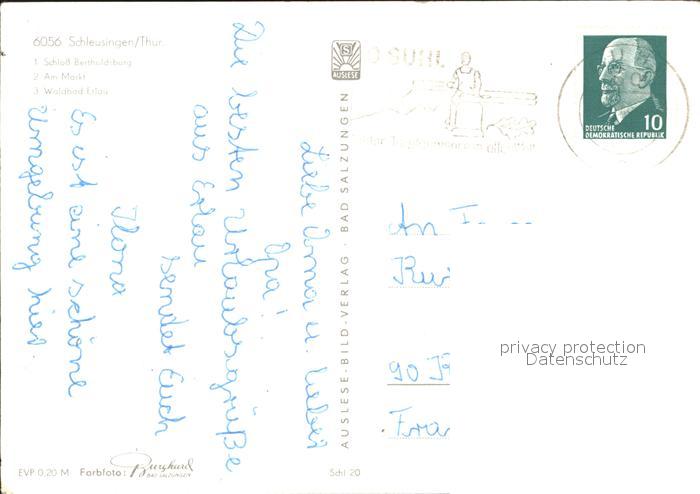 6056 Schleusingen/Thür.
1 Schloß Bertholdsburg
2 Am Markt
3 Waldbad Erlau
Liebe Oma u. lieber
Opa!
Die besten Urlaubsgrüße
aus Erlau
sendet Euch
Ilona
Es ist eine schöne
Umgebung hier.
EVP 0,20 M Farbfoto: Burghard
BAD SALZUNGEN
S
AUSLESE
AUSLESE-BILD-VERLAG · BAD SALZUNGEN
Schl 20
SUHL
DEUTSCHE
DEMOKRATISCHE REPUBLIK
10
An
90
Fra
privacy protection
Datenschutz